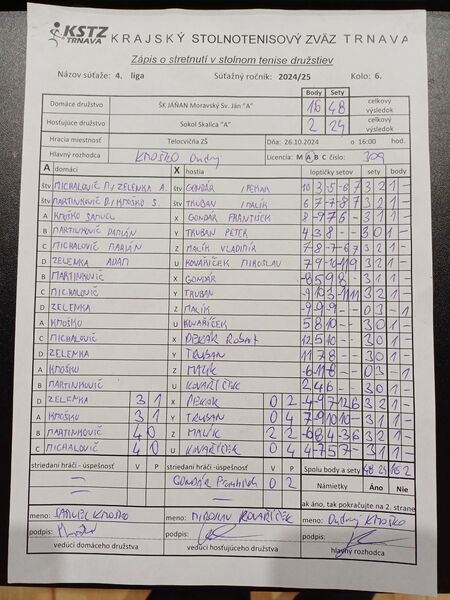 KSTZ TRNAVA KRAJSKÝ STOLNOTENISOVÝ ZVÄZ TRNAVA
Zápis o stretnutí v stolnom tenise družstiev
Názov súťaže: 4. liga Súťažný ročník: 2024/25 Kolo: 6.
Body Sety
Domáce družstvo ŠK JÁŇAN Moravský Sv. Ján "A" 16 48 celkový výsledok
Hosťujúce družstvo Sokol Skalica "A" 2 24 celkový výsledok
Hracia miestnosť Telocvičňa ZŠ Dňa: 26.10.2024 o 16:00 hod.
Hlavný rozhodca KMOŠKO Licencia: M A B C číslo: 309
A domáci X hostia loptičky setov sety body
štv MICHALOVIČ M / ZELENKA A. štv GONDÁR / PEKAR 10 3 5 -6 7 3 2 1 -
štv MARTINKOVIČ D / KMOŠKO S. štv TRUBAN / MALÍK 6 7 -7 8 7 3 2 1 -
A KMOŠKO SAMUEL X GONDÁR FRANTIŠEK 8 -9 7 6 - 3 1 1 -
B MARTINKOVIČ DAMIÁN Y TRUBAN PETER 4 3 8 - - 3 0 1 -
C MICHALOVIČ MARIÁN Z MALÍK VLADIMÍR 7 8 -7 -6 7 3 2 1 -
D ZELENKA ADAM U KOVAŘÍČEK MIROSLAV
B MARTINKOVIČ X GONDÁR -8 5 9 8 - 3 1 1 -
C MICHALOVIČ Y TRUBAN
D ZELENKA Z MALÍK -9 -9 -9 - - 0 3 - 1
A KMOŠKO U KOVAŘÍČEK 5 8 10 - - 3 0 1 -
C MICHALOVIČ X PEKÁR Róbert 12 5 10 - - 3 0 1 -
D ZELENKA Y TRUBAN 11 7 8 - - 3 0 1 -
A KMOŠKO Z MALÍK -6 -11 -8 - - 0 3 - 1
B MARTINKOVIČ U KOVAŘÍČEK 2 4 6 - - 3 0 1 -
D ZELENKA 3 1 X PEKAR 0 2 -4 9 -7 12 6 3 2 1 -
A KMOŠKO 3 1 Y TRUBAN 0 4 7 -9 10 10 - 3 1 1 -
B MARTINKOVIČ 4 0 Z MALÍK 2 2 -6 8 4 -3 6 3 2 1 -
C MICHALOVIČ 4 0 U KOVAŘÍČEK 0 4 4 -7 5 7 - 3 1 1 -
striedaní hráči - úspešnosť V P striedaní hráči - úspešnosť V P Spolu body a sety 48 24 16 2
GONDÁR František 0 2 Námietky Áno Nie
ak áno, tak pokračujte na 2. strane
meno: SAMUEL KMOŠKO meno: MIROSLAV KOVAŘÍČEK meno: KMOŠKO
podpis: podpis: podpis:
vedúci domáceho družstva vedúci hosťujúceho družstva hlavný rozhodca